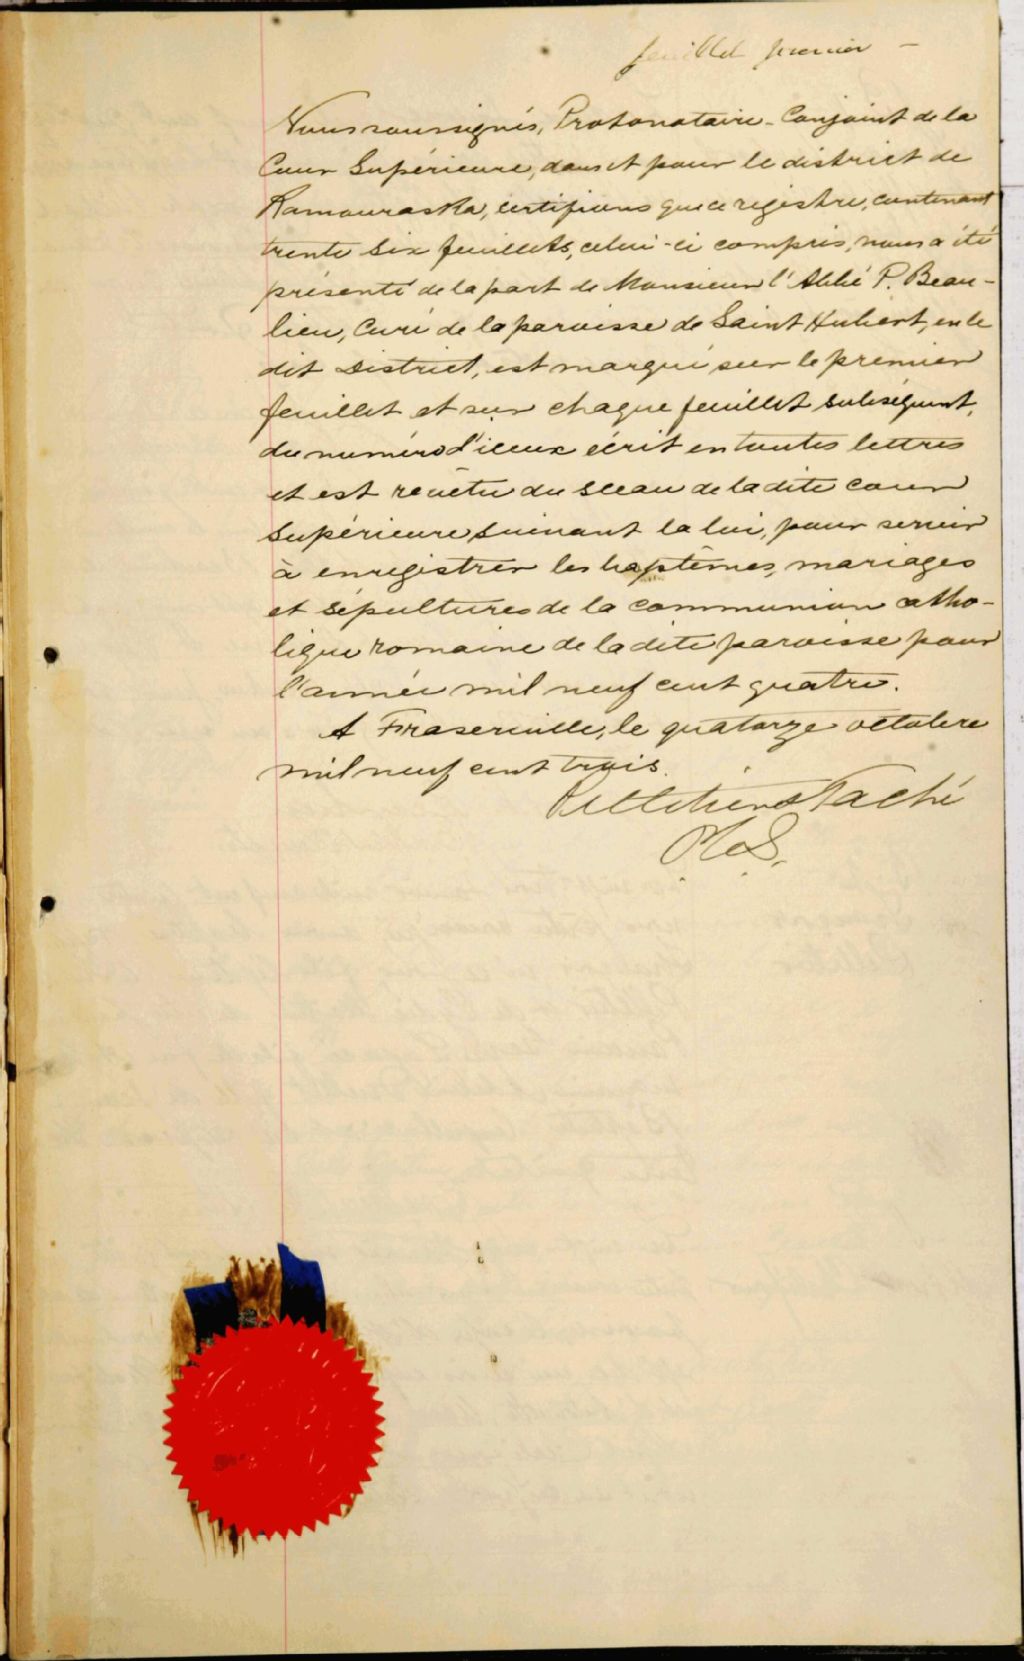 feuillet premier —
Nous soussignés, Protonotaire-Conjoint de la
Cour Supérieure, dans et pour le district de
Kamouraska, certifions que ce registre, contenant
trente six feuillets, celui-ci compris, nous a été
présenté de la part de Monsieur l'Abbé P. Beau-
lieu, Curé de la paroisse de Saint Hubert, en le
dit District, est marqué sur le premier
feuillet et sur chaque feuillet subséquent,
du numéro d'iceux écrit en toutes lettres
et est revêtu du sceau de la dite cour
supérieure suivant la loi, pour servir
à enregistrer les baptêmes, mariages
et sépultures de la communion catho-
lique romaine de la dite paroisse pour
l'année mil neuf cent quatre.
A Fraserville, le quatorze octobre
mil neuf cent trois.
Pelletier & Taché
P.C.S.